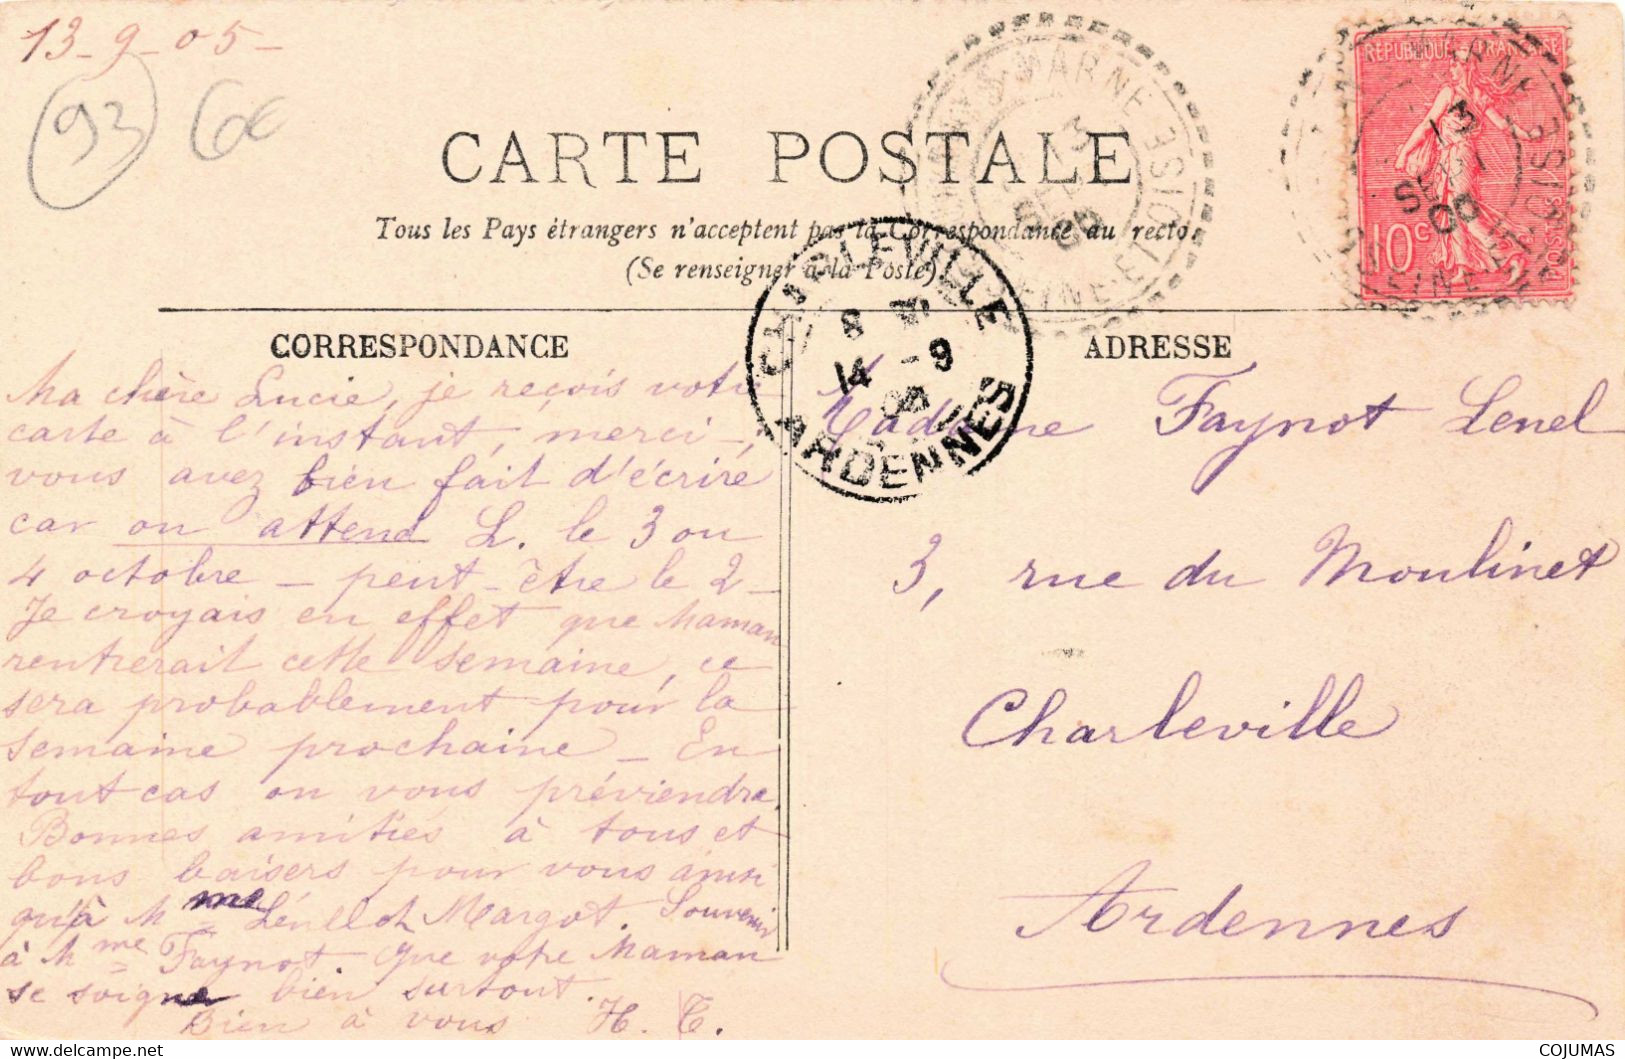 13-9-05-
93
6€
CARTE POSTALE
Tous les Pays étrangers n'acceptent pas la Correspondance au recto.
(Se renseigner à la Poste)
RÉPUBLIQUE FRANÇAISE
10c
POSTES
MARNE
SEINE-ET-OISE
13
SEPT
05
MARNE
SEINE-ET-OISE
13
SEPT
05
CHARLEVILLE
8
14 -9
05
ARDENNES
CORRESPONDANCE
Ma chère Lucie, je reçois votre
carte à l'instant, merci,
vous avez bien fait d'écrire
car on attend L. le 3 ou
4 octobre - peut-être le 2 -
Je croyais en effet que Maman
rentrerait cette semaine, ce
sera probablement pour la
semaine prochaine - En
tout cas on vous préviendra.
Bonnes amitiés à tous et
bons baisers pour vous ainsi
qu'à Mme Lénel et Margot. Souvenir
à Mme Faynot que votre Maman
se soigne bien surtout.
Bien à vous H. T.
ADRESSE
Madame Faynot Lenel
3, rue du Moulinet
Charleville
Ardennes
COJUMAS